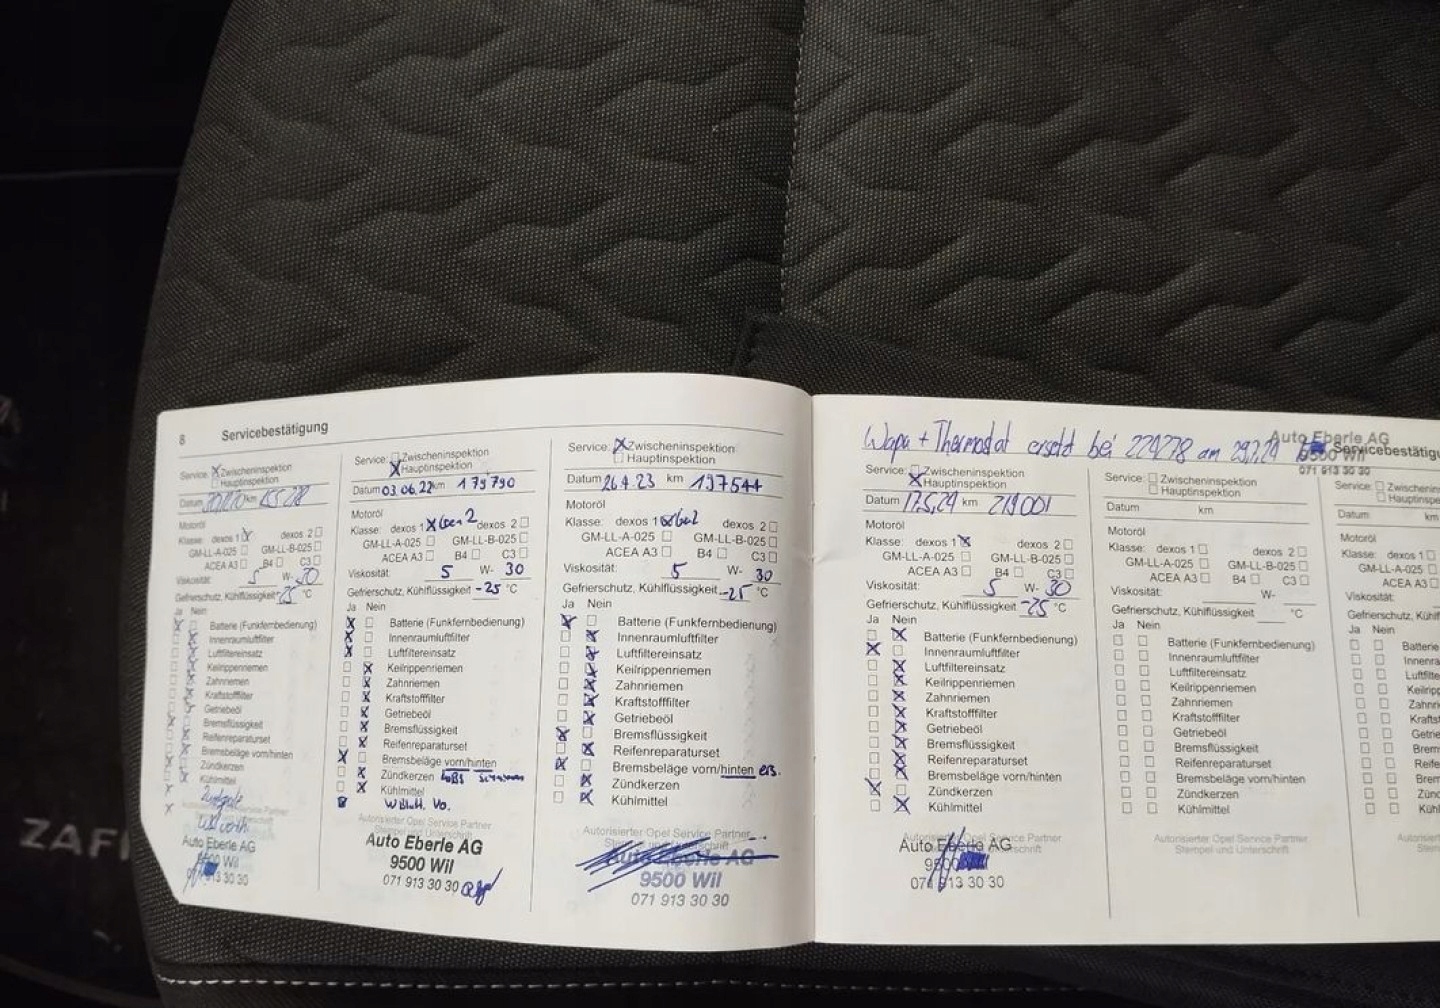 8 Servicebestätigung
Service: Zwischeninspektion
Hauptinspektion
Datum km
Motoröl
Klasse: dexos 1 dexos 2
GM-LL-A-025 GM-LL-B-025
ACEA A3 B4 C3
Viskosität: 5 W- 30
Gefrierschutz, Kühlflüssigkeit -25 °C
Ja Nein
Batterie (Funkfernbedienung)
Innenraumluftfilter
Luftfiltereinsatz
Keilrippenriemen
Zahnriemen
Kraftstofffilter
Getriebeöl
Bremsflüssigkeit
Reifenreparaturset
Bremsbeläge vorn/hinten
Zündkerzen
Kühlmittel
Auto Eberle AG
9500 Wil
913 30 30
Service: Zwischeninspektion
Hauptinspektion
Datum 03.06.22 km 179790
Motoröl
Klasse: dexos 1 Gen 2 dexos 2
GM-LL-A-025 GM-LL-B-025
ACEA A3 B4 C3
Viskosität: 5 W- 30
Gefrierschutz, Kühlflüssigkeit -25 °C
Ja Nein
Batterie (Funkfernbedienung)
Innenraumluftfilter
Luftfiltereinsatz
Keilrippenriemen
Zahnriemen
Kraftstofffilter
Getriebeöl
Bremsflüssigkeit
Reifenreparaturset
Bremsbeläge vorn/hinten
Zündkerzen
Kühlmittel
Vo.
Autorisierter Opel Service Partner
Auto Eberle AG
9500 Wil
071 913 30 30
Service: Zwischeninspektion
Hauptinspektion
Datum 26.4.23 km 197544
Motoröl
Klasse: dexos 1 dexos 2
GM-LL-A-025 GM-LL-B-025
ACEA A3 B4 C3
Viskosität: 5 W- 30
Gefrierschutz, Kühlflüssigkeit -25 °C
Ja Nein
Batterie (Funkfernbedienung)
Innenraumluftfilter
Luftfiltereinsatz
Keilrippenriemen
Zahnriemen
Kraftstofffilter
Getriebeöl
Bremsflüssigkeit
Reifenreparaturset
Bremsbeläge vorn/hinten ers.
Zündkerzen
Kühlmittel
Autorisierter Opel Service Partner
Auto Eberle AG
9500 Wil
071 913 30 30
Wapu + Thermostat ersetzt bei 224278 am
Auto Eberle AG
9500 Wil
071 913 30 30
Service: Zwischeninspektion
Hauptinspektion
Datum 17.5.24 km 219001
Motoröl
Klasse: dexos 1 dexos 2
GM-LL-A-025 GM-LL-B-025
ACEA A3 B4 C3
Viskosität: 5 W- 30
Gefrierschutz, Kühlflüssigkeit -25 °C
Ja Nein
Batterie (Funkfernbedienung)
Innenraumluftfilter
Luftfiltereinsatz
Keilrippenriemen
Zahnriemen
Kraftstofffilter
Getriebeöl
Bremsflüssigkeit
Reifenreparaturset
Bremsbeläge vorn/hinten
Zündkerzen
Kühlmittel
Auto Eberle AG
071 913 30 30
Service: Zwischeninspektion
Hauptinspektion
Datum km
Motoröl
Klasse: dexos 1 dexos 2
GM-LL-A-025 GM-LL-B-025
ACEA A3 B4 C3
Viskosität: W-
Gefrierschutz, Kühlflüssigkeit °C
Ja Nein
Batterie (Funkfernbedienung)
Innenraumluftfilter
Luftfiltereinsatz
Keilrippenriemen
Zahnriemen
Kraftstofffilter
Getriebeöl
Bremsflüssigkeit
Reifenreparaturset
Bremsbeläge vorn/hinten
Zündkerzen
Kühlmittel
Autorisierter Opel Service Partner
Stempel und Unterschrift
Servicebestätigu
Service: Zwischenins
Hauptinspek
Datum km
Motoröl
Klasse: dexos 1
GM-LL-A-025
ACEA A3
Viskosität:
Gefrierschutz, Kühlf
Ja Nein
Batterie
Innenra
Luftfilt
Keilripp
Zahnri
Krafts
Getrie
Brem
Reife
Brem
Zünd
Kühl
ZAFI